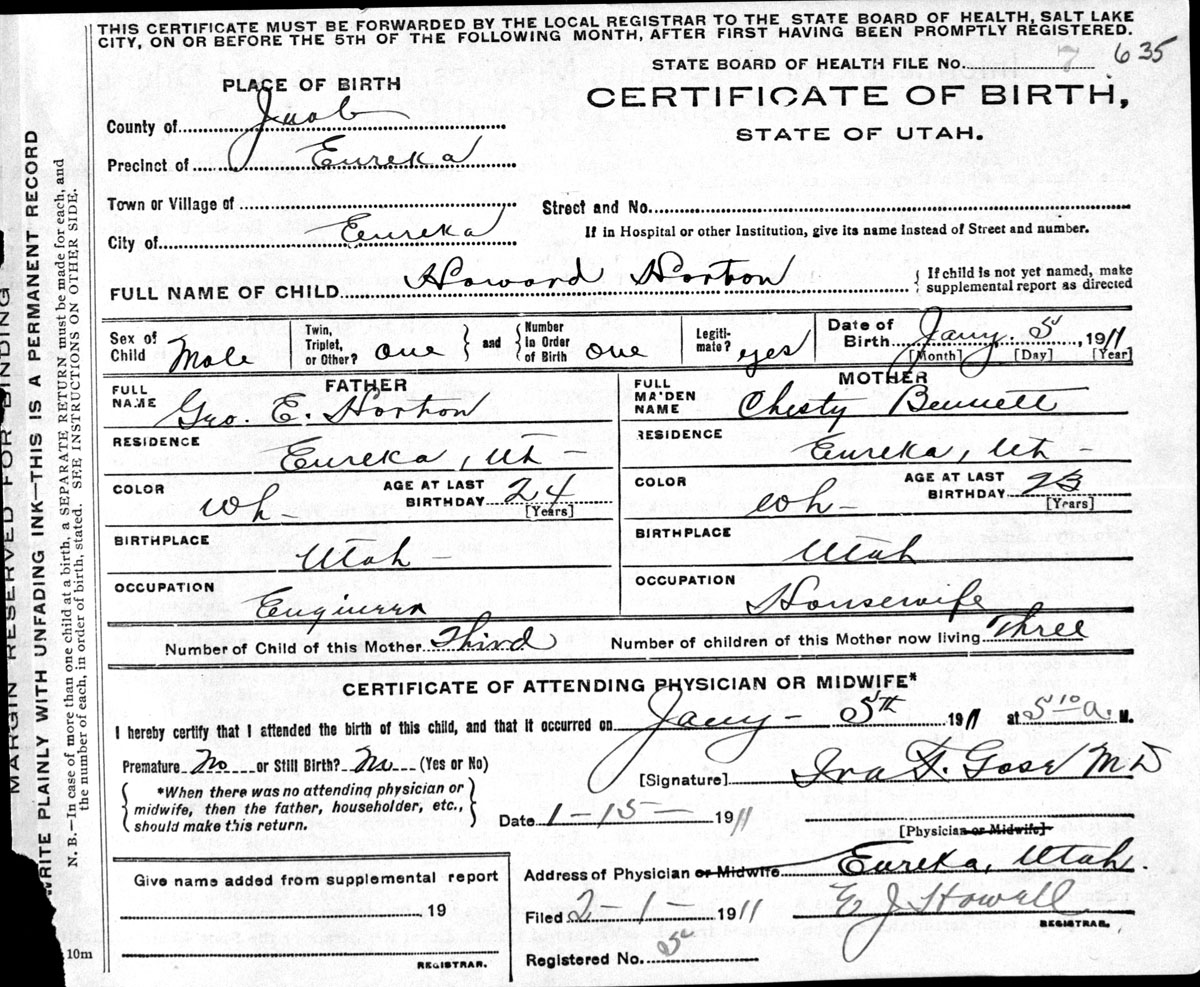 THIS CERTIFICATE MUST BE FORWARDED BY THE LOCAL REGISTRAR TO THE STATE BOARD OF HEALTH, SALT LAKE
CITY, ON OR BEFORE THE 5TH OF THE FOLLOWING MONTH, AFTER FIRST HAVING BEEN PROMPTLY REGISTERED.
STATE BOARD OF HEALTH FILE No. 7 635
PLACE OF BIRTH
CERTIFICATE OF BIRTH,
STATE OF UTAH.
County of Juab
Precinct of Eureka
Town or Village of
Street and No.
City of Eureka
If in Hospital or other Institution, give its name instead of Street and number.
FULL NAME OF CHILD Howard Horton
If child is not yet named, make
supplemental report as directed
Sex of Child Male
Twin, Triplet, or Other? one
and
Number in Order of Birth one
Legiti- mate? yes
Date of Birth Jany. 5 1911
[Month] [Day] [Year]
FATHER
FULL NAME Geo. E. Horton
RESIDENCE Eureka, Ut
COLOR Wh
AGE AT LAST BIRTHDAY 24
[Years]
BIRTHPLACE Utah
OCCUPATION Engineer
MOTHER
FULL MAIDEN NAME Chesty Bennett
RESIDENCE Eureka, Ut
COLOR Wh
AGE AT LAST BIRTHDAY 23
[Years]
BIRTHPLACE Utah
OCCUPATION Housewife
Number of Child of this Mother Third
Number of children of this Mother now living Three
CERTIFICATE OF ATTENDING PHYSICIAN OR MIDWIFE*
I hereby certify that I attended the birth of this child, and that it occurred on Jany - 5th 1911 at 5 10 a. M.
Premature? No or Still Birth? No (Yes or No)
[Signature] Ira F. Gose MD
*When there was no attending physician or
midwife, then the father, householder, etc.,
should make this return.
Date 1-15- 1911
[Physician or Midwife]
Address of Physician or Midwife Eureka, Utah.
Give name added from supplemental report
, 19
REGISTRAR.
Filed 2-1- 1911
E J Howell
REGISTRAR.
Registered No. 5
10m
MARGIN RESERVED FOR BINDING
WRITE PLAINLY WITH UNFADING INK—THIS IS A PERMANENT RECORD
N. B.—In case of more than one child at a birth, a SEPARATE RETURN must be made for each, and
the number of each, in order of birth, stated. SEE INSTRUCTIONS ON OTHER SIDE.